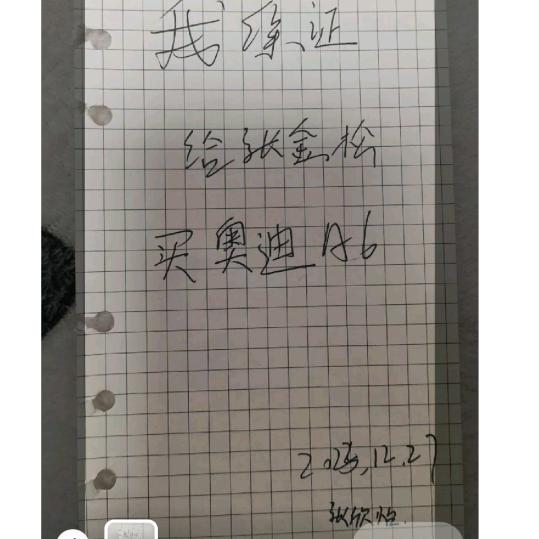 我保证
给张金松
买奥迪A6
2025.12.27
张欣怡